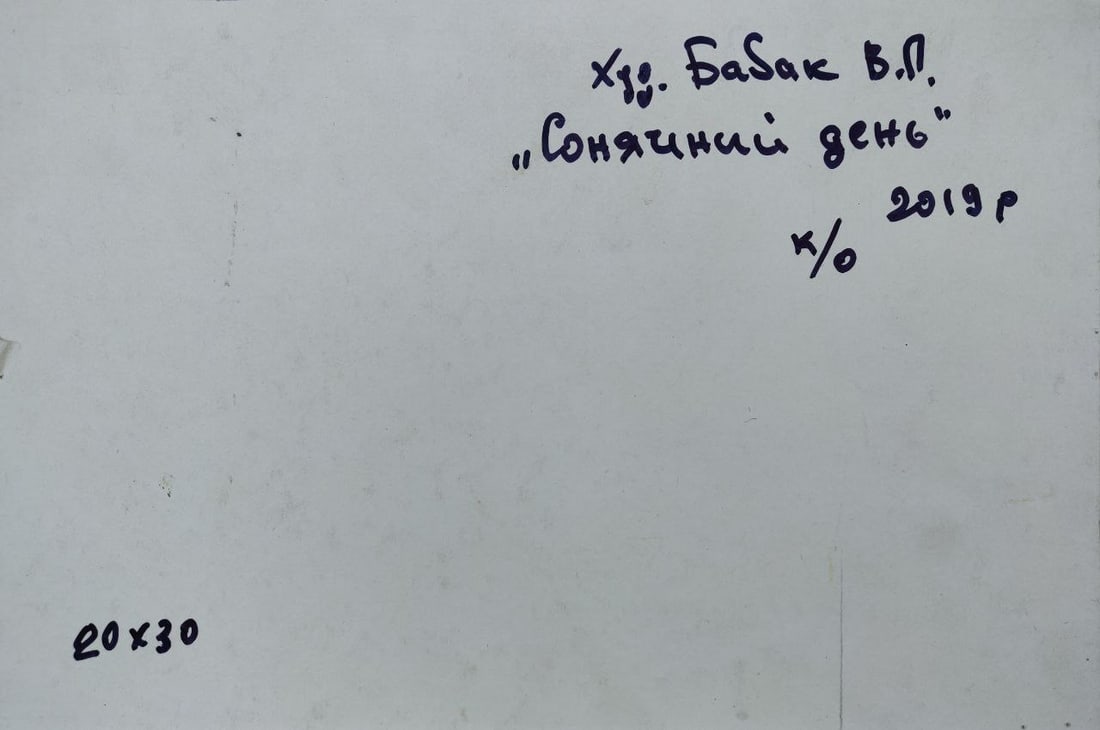 худ. Бабак В.П.
„Сонячний день"
2019 р
к/о
20х30